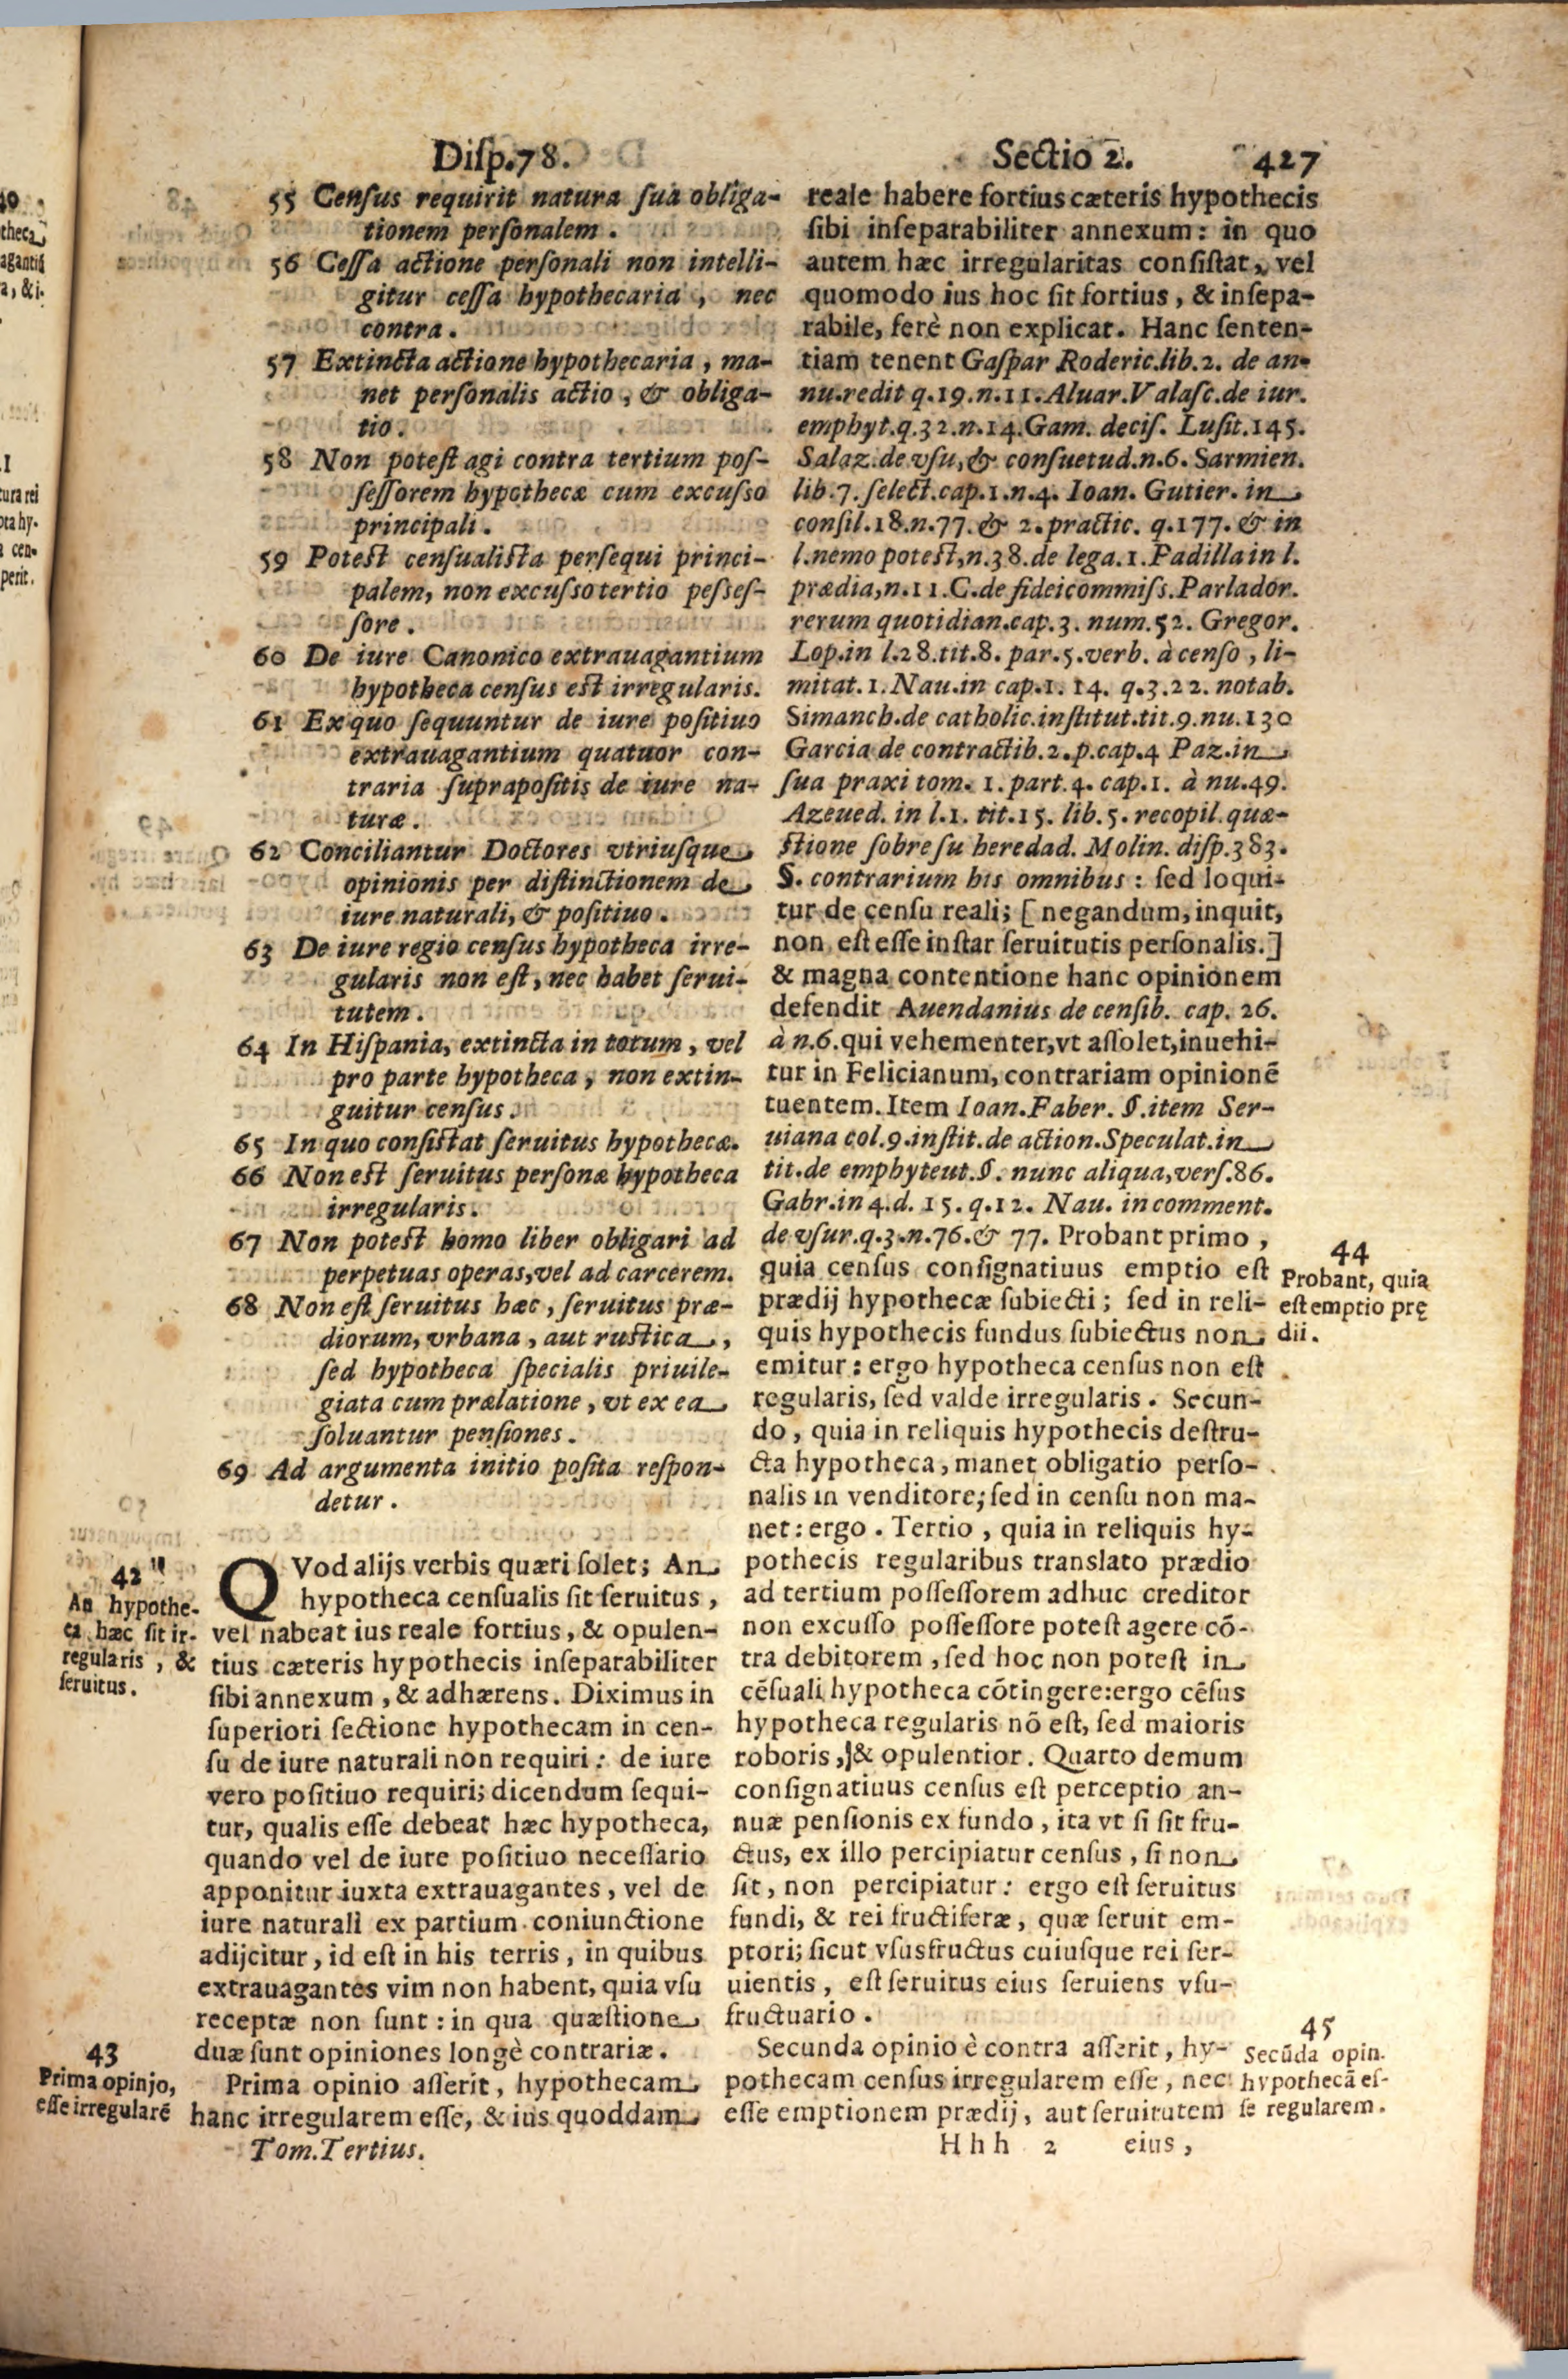 Diſp.78.
Sectio 2.
427
55 Cenſus requirit natura ſua obliga-
tionem perſonalem.
56 Ceſſa actione perſonali non intelli-
gitur ceſſa hypothecaria, nec
contra.
57 Extincta actione hypothecaria, ma-
net perſonalis actio, & obliga-
tio.
58 Non poteſt agi contra tertium poſ-
ſeſſorem hypothecæ cum excuſso
principali.
59 Poteſt cenſualiſta perſequi princi-
palem, non excuſso tertio peſseſ-
ſore.
60 De iure Canonico extrauagantium
hypotheca cenſus eſt irregularis.
61 Ex quo ſequuntur de iure poſitiuo
extrauagantium quatuor con-
traria ſuprapoſitis de iure na-
turæ.
62 Conciliantur Doctores vtriuſque
opinionis per diſtinctionem de
iure naturali, & poſitiuo.
63 De iure regio cenſus hypotheca irre-
gularis non eſt, nec habet ſerui-
tutem.
64 In Hiſpania, extincta in totum, vel
pro parte hypotheca, non extin-
guitur cenſus.
65 In quo conſiſtat ſeruitus hypothecæ.
66 Non eſt ſeruitus perſonæ hypotheca
irregularis.
67 Non poteſt homo liber obligari ad
perpetuas operas, vel ad carcerem.
68 Non eſt ſeruitus hæc, ſeruitus præ-
diorum, vrbana, aut ruſtica,
ſed hypotheca ſpecialis priuile-
giata cum prælatione, vt ex ea
ſoluantur penſiones.
69 Ad argumenta initio poſita reſpon-
detur.
42
An hypothe-
ca hæc ſit ir-
regularis, &
ſeruitus.
QVod alijs verbis quæri ſolet; An
hypotheca cenſualis ſit ſeruitus,
vel habeat ius reale fortius, & opulen-
tius cæteris hypothecis inſeparabiliter
ſibi annexum, & adhærens. Diximus in
ſuperiori ſectione hypothecam in cen-
ſu de iure naturali non requiri: de iure
vero poſitiuo requiri; dicendum ſequi-
tur, qualis eſſe debeat hæc hypotheca,
quando vel de iure poſitiuo neceſſario
apponitur iuxta extrauagantes, vel de
iure naturali ex partium coniunctione
adijcitur, id eſt in his terris, in quibus
extrauagantes vim non habent, quia vſu
receptæ non ſunt: in qua quæſtione
duæ ſunt opiniones longè contrariæ.
43
Prima opinjo,
eſſe irregularē
Prima opinio aſſerit, hypothecam
hanc irregularem eſſe, & ius quoddam
Tom.Tertius.
reale habere fortius cæteris hypothecis
ſibi inſeparabiliter annexum: in quo
autem hæc irregularitas conſiſtat, vel
quomodo ius hoc ſit fortius, & inſepa-
rabile, ferè non explicat. Hanc ſenten-
tiam tenent Gaſpar Roderic.lib.2. de an-
nu.redit q.19.n.11.Aluar.Valaſc.de iur.
emphyt.q.32.n.14.Gam. deciſ. Luſit.145.
Salaz.de vſu, & conſuetud.n.6. Sarmien.
lib.7. ſelect.cap.1.n.4. Ioan. Gutier. in
conſil.18.n.77. & 2.practic. q.177. & in
l.nemo poteſt,n.38.de lega.1.Padilla in l.
prædia,n.11.C.de fideicommiſs.Parladór.
rerum quotidian.cap.3. num.52. Gregor.
Lop.in l.28.tit.8. par.5.verb. à cenſo, li-
mitat.1.Nau.in cap.1. 14. q.3.22. notab.
Simanch.de catholic.inſtitut.tit.9.nu.130
Garcia de contractib.2.p.cap.4 Paz.in
ſua praxi tom. 1. part.4. cap.1. à nu.49.
Azeued. in l.1. tit.15. lib.5. recopil.quæ-
ſtione ſobre ſu heredad. Molin. diſp.383.
§. contrarium his omnibus: ſed loqui-
tur de cenſu reali; [negandum, inquit,
non eſt eſſe inſtar ſeruitutis perſonalis.]
& magna contentione hanc opinionem
defendit Auendanius de cenſib. cap. 26.
à n.6.qui vehementer,vt aſſolet,inuehi-
tur in Felicianum, contrariam opinionē
tuentem. Item Ioan.Faber. §.item Ser-
uiana col.9.inſtit.de action.Speculat.in
tit.de emphyteut.§. nunc aliqua,verſ.86.
Gabr.in 4.d. 15. q.12. Nau. in comment.
de vſur.q.3.n.76.& 77. Probant primo,
quia cenſus conſignatiuus emptio eſt
prædij hypothecæ ſubiecti; ſed in reli-
quis hypothecis fundus ſubiectus non
emitur: ergo hypotheca cenſus non eſt
regularis, ſed valde irregularis. Secun-
do, quia in reliquis hypothecis deſtru-
cta hypotheca, manet obligatio perſo-
nalis in venditore; ſed in cenſu non ma-
net: ergo. Tertio, quia in reliquis hy-
pothecis regularibus translato prædio
ad tertium poſſeſſorem adhuc creditor
non excuſſo poſſeſſore poteſt agere cō-
tra debitorem, ſed hoc non poteſt in
cēſuali hypotheca cōtingere:ergo cēſus
hypotheca regularis nō eſt, ſed maioris
roboris,]& opulentior. Quarto demum
conſignatiuus cenſus eſt perceptio an-
nuæ penſionis ex fundo, ita vt ſi ſit fru-
ctus, ex illo percipiatur cenſus, ſi non
ſit, non percipiatur: ergo eſt ſeruitus
fundi, & rei fructiferæ, quæ ſeruit em-
ptori; ſicut vſusfructus cuiuſque rei ſer-
uientis, eſt ſeruitus eius ſeruiens vſu-
fructuario.
44
Probant, quia
eſt emptio prę
dii.
Secunda opinio è contra aſſerit, hy-
pothecam cenſus irregularem eſſe, nec
eſſe emptionem prædij, aut ſeruitutem
45
Secūda opin.
hypothecā eſ-
ſe regularem.
Hhh 2
eius,